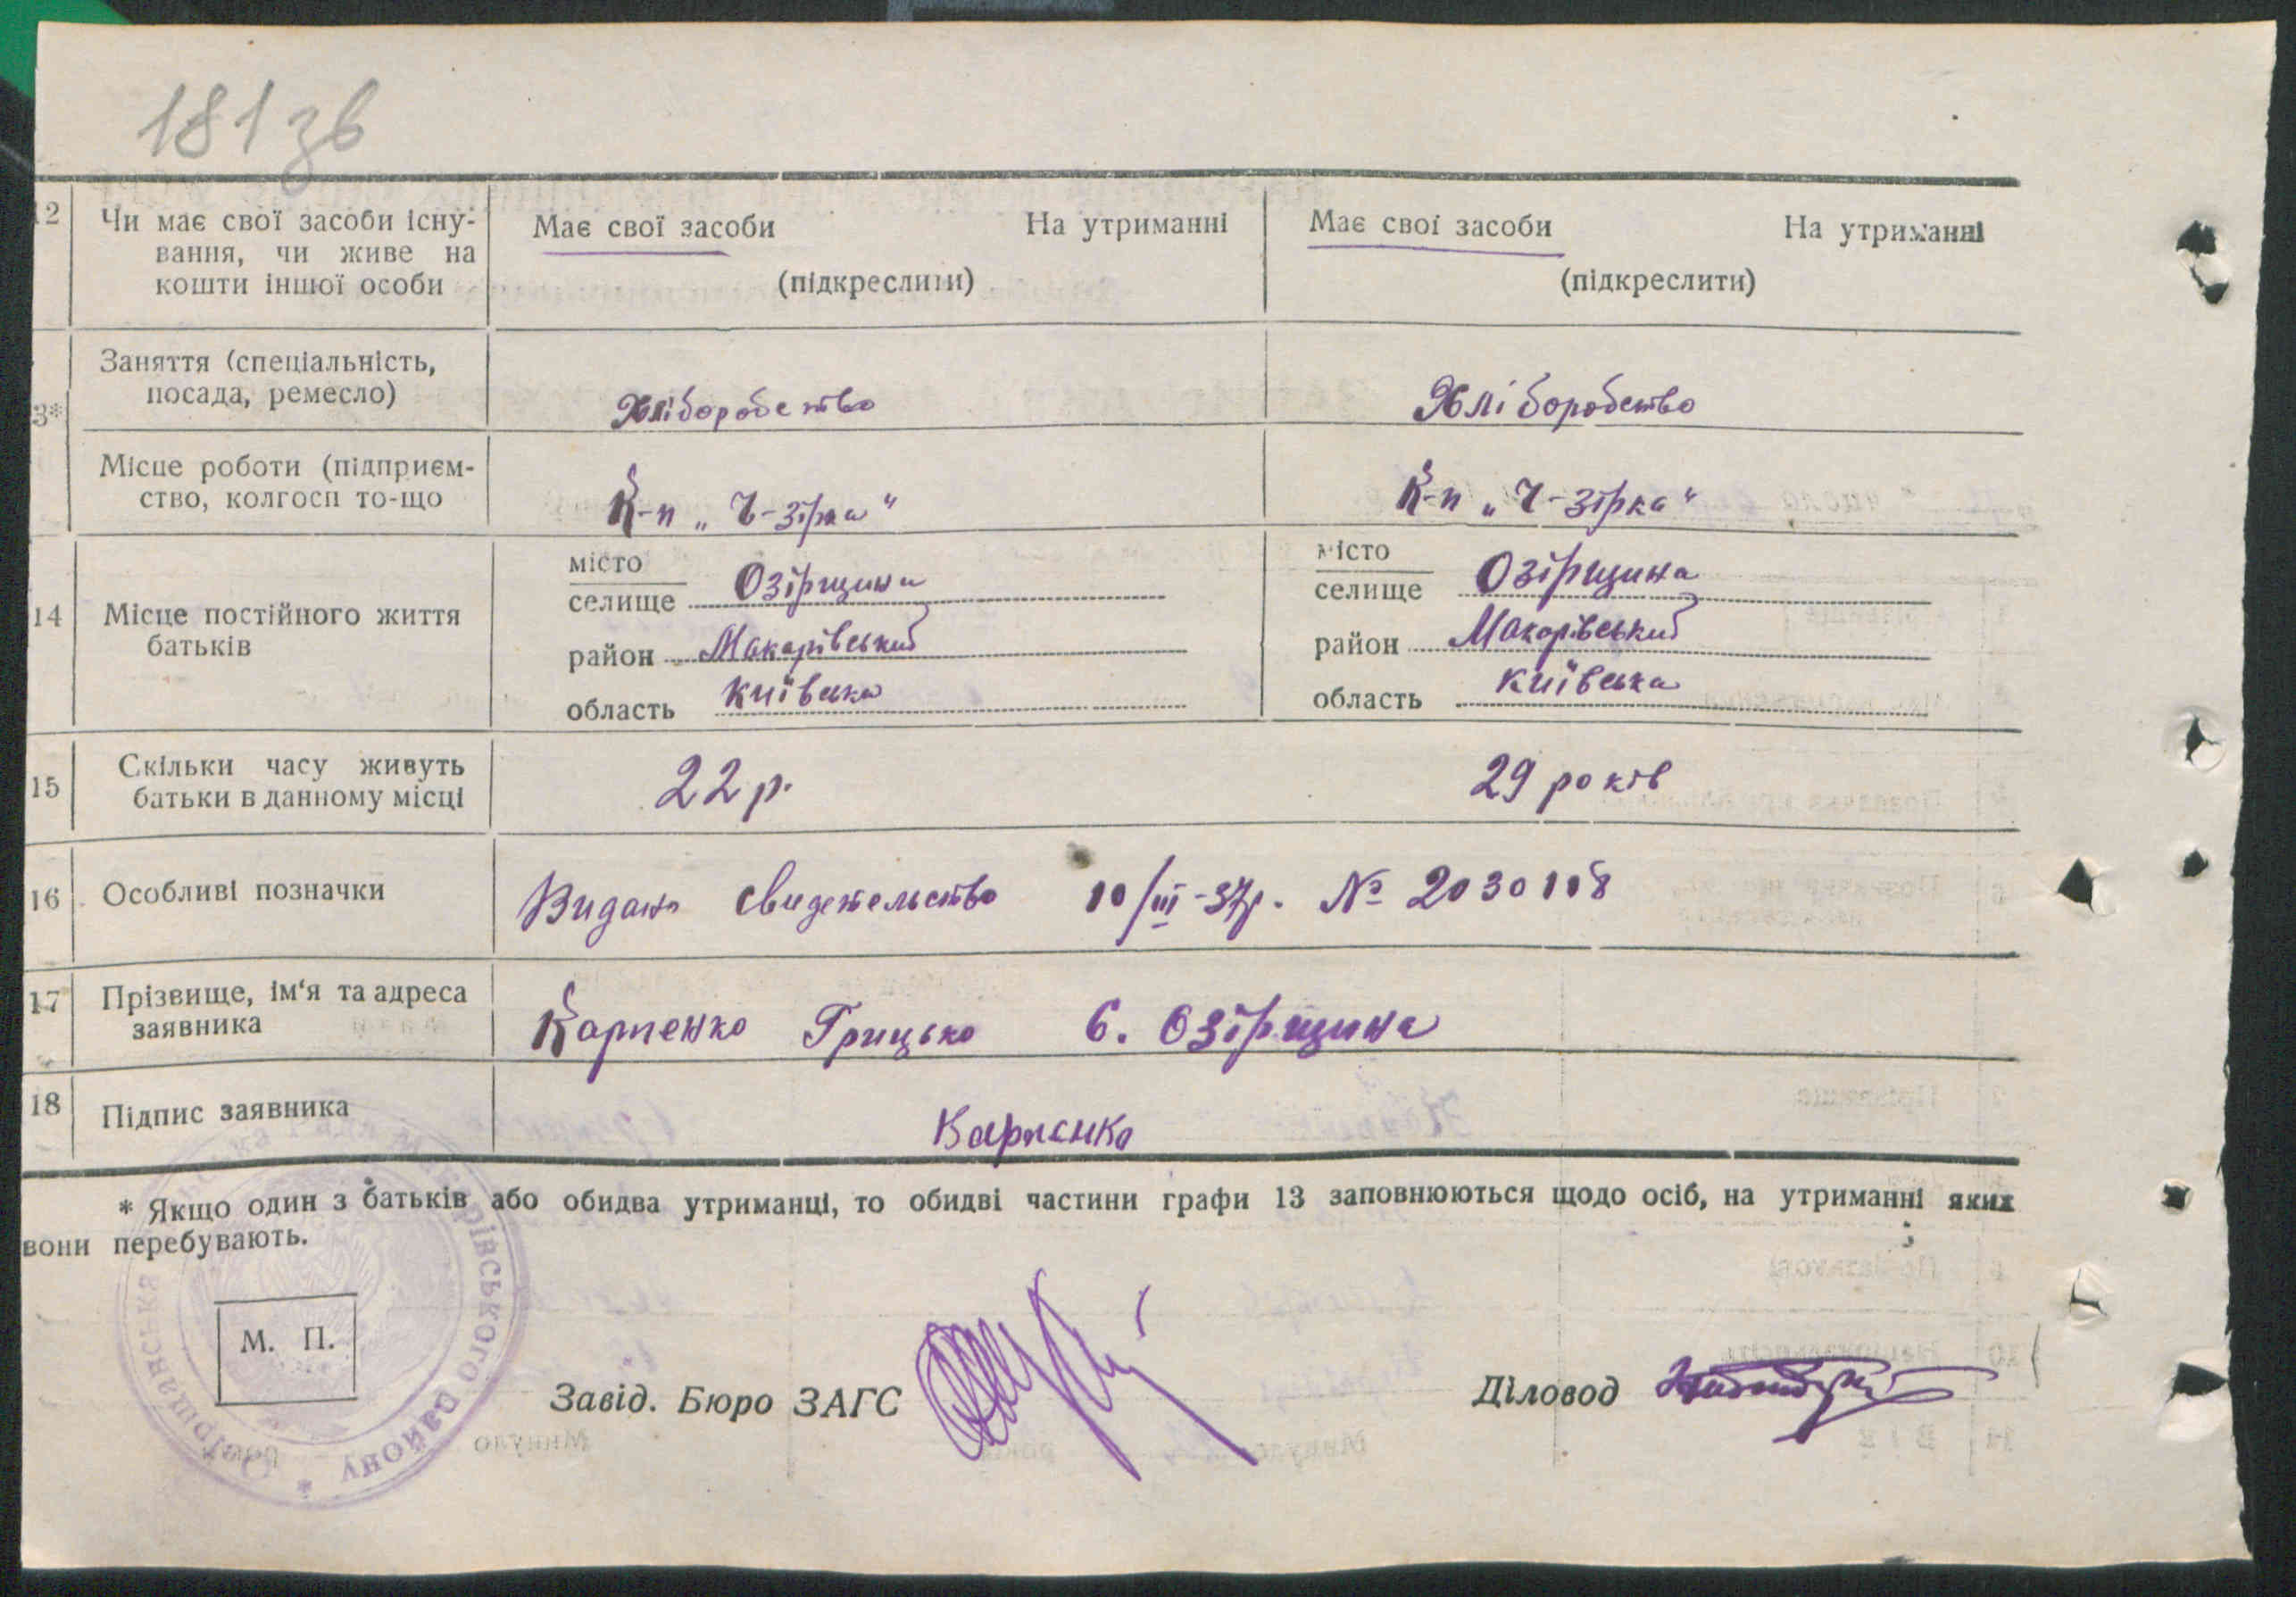 181 зв
12 Чи має свої засоби існу- Має свої засоби На утриманні Має свої засоби На утриманні
вання, чи живе на
кошти іншої особи (підкреслити) (підкреслити)
Заняття (спеціальність,
посада, ремесло) Хліборобство Хліборобство
3*
Місце роботи (підприєм-
ство, колгосп то-що К-п „Ч-зірка“ К-п „Ч-зірка“
місто місто
селище Озірщина селище Озірщина
14 Місце постійного життя
батьків район Макарівський район Макарівський
область Київська область Київська
15 Скільки часу живуть 22 р. 29 років
батьки в данному місці
16 Особливі позначки Видано свидетельство 10/III-37р. № 2030108
17 Прізвище, ім‘я та адреса
заявника Карпенко Грицько С. Озірщина
18 Підпис заявника Карпенко
* Якщо один з батьків або обидва утриманці, то обидві частини графи 13 заповнюються щодо осіб, на утриманні яких
вони перебувають.
М. П.
Завід. Бюро ЗАГС Діловод
Рада Макарівського району *